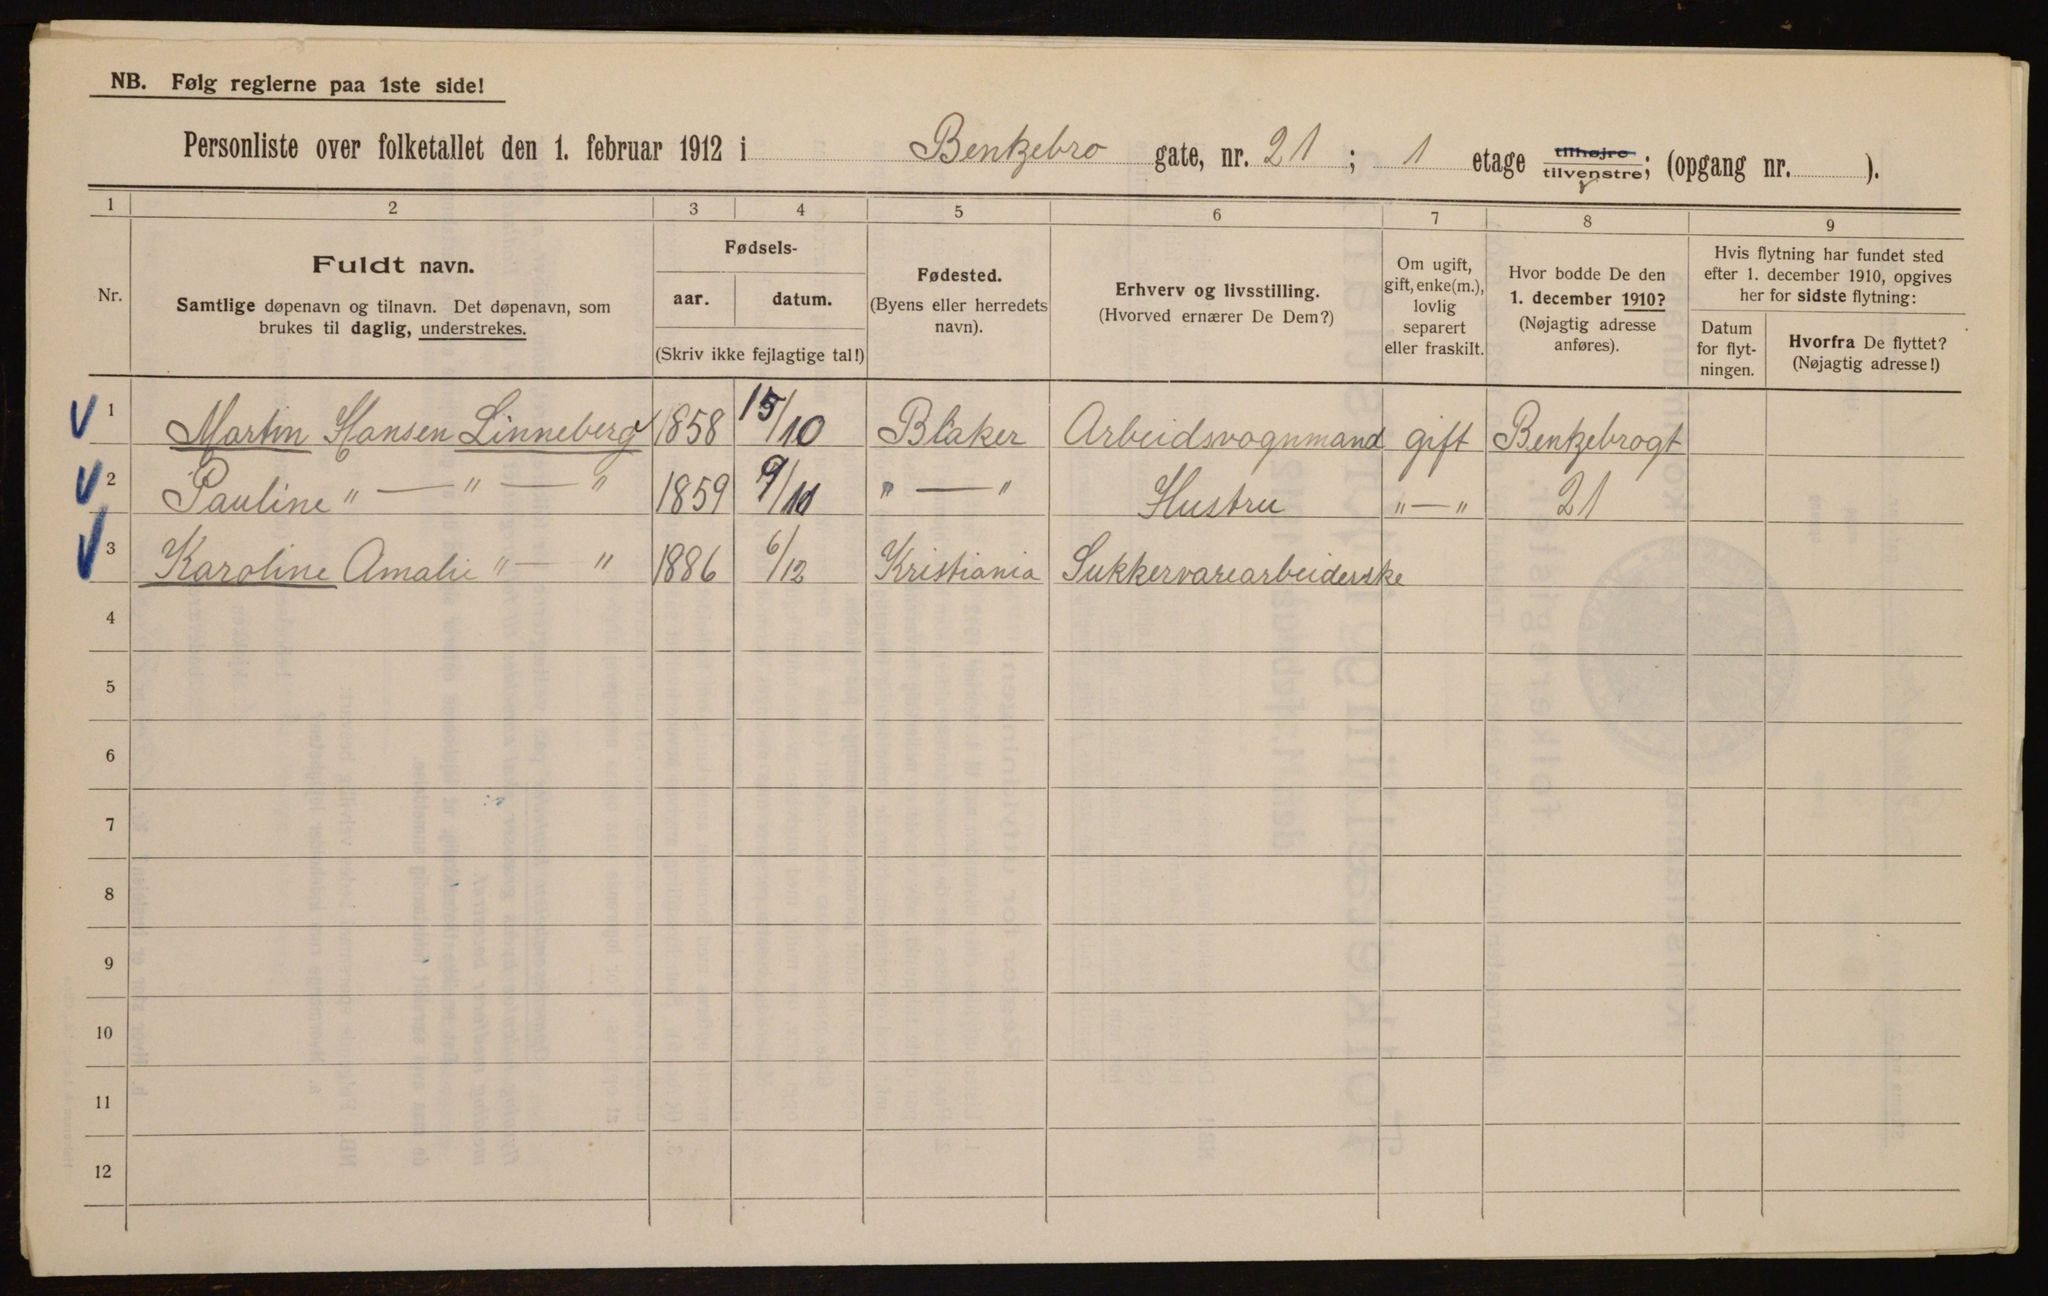 NB. Følg reglerne paa 1ste side!
Personliste over folketallet den 1. februar 1912 i Benkebro gate, nr. 21 ; 1 etage tilhøjre tilvenstre; (opgang nr. ).
1 2 3 4 5 6 7 8 9
Nr.
Fuldt navn.
Samtlige døpenavn og tilnavn. Det døpenavn, som
brukes til daglig, understrekes.
Fødsels-
aar. datum.
(Skriv ikke fejlagtige tal!)
Fødested.
(Byens eller herredets
navn).
Erhverv og livsstilling.
(Hvorved ernærer De Dem?)
Om ugift,
gift, enke(m.),
lovlig
separert
eller fraskilt.
Hvor bodde De den
1. december 1910?
(Nøjagtig adresse
anføres).
Hvis flytning har fundet sted
efter 1. december 1910, opgives
her for sidste flytning:
Datum
for flyt-
ningen.
Hvorfra De flyttet?
(Nøjagtig adresse!)
1 Martin Hansen Linneberg 1858 15/10 Blaker Arbeidsvognmand gift Benkebrogt
2 Pauline " — " — " 1859 9/10 " — " Hustru " — " 21
3 Karoline Amalie " — " 1886 6/12 Kristiania Sukkervarearbeiderske
4
5
6
7
8
9
10
11
12